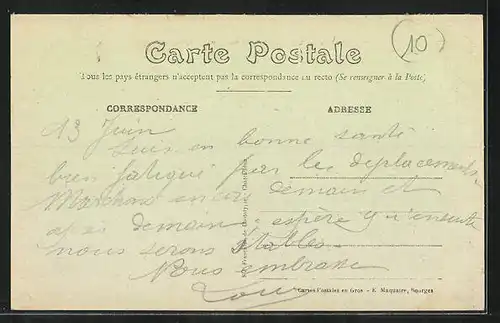 10
Carte Postale
Tous les pays étrangers n'acceptent pas la correspondance au recto (Se renseigner à la Poste)
CORRESPONDANCE ADRESSE
13 Juin
Suis en bonne santé
bien fatigué par les deplacements.
Marchons encore demain et
après demain. espère qu'ensuite
nous serons stables.
Vous embrasse
Cartes Postales en Gros - E. Maquaire, Bourges